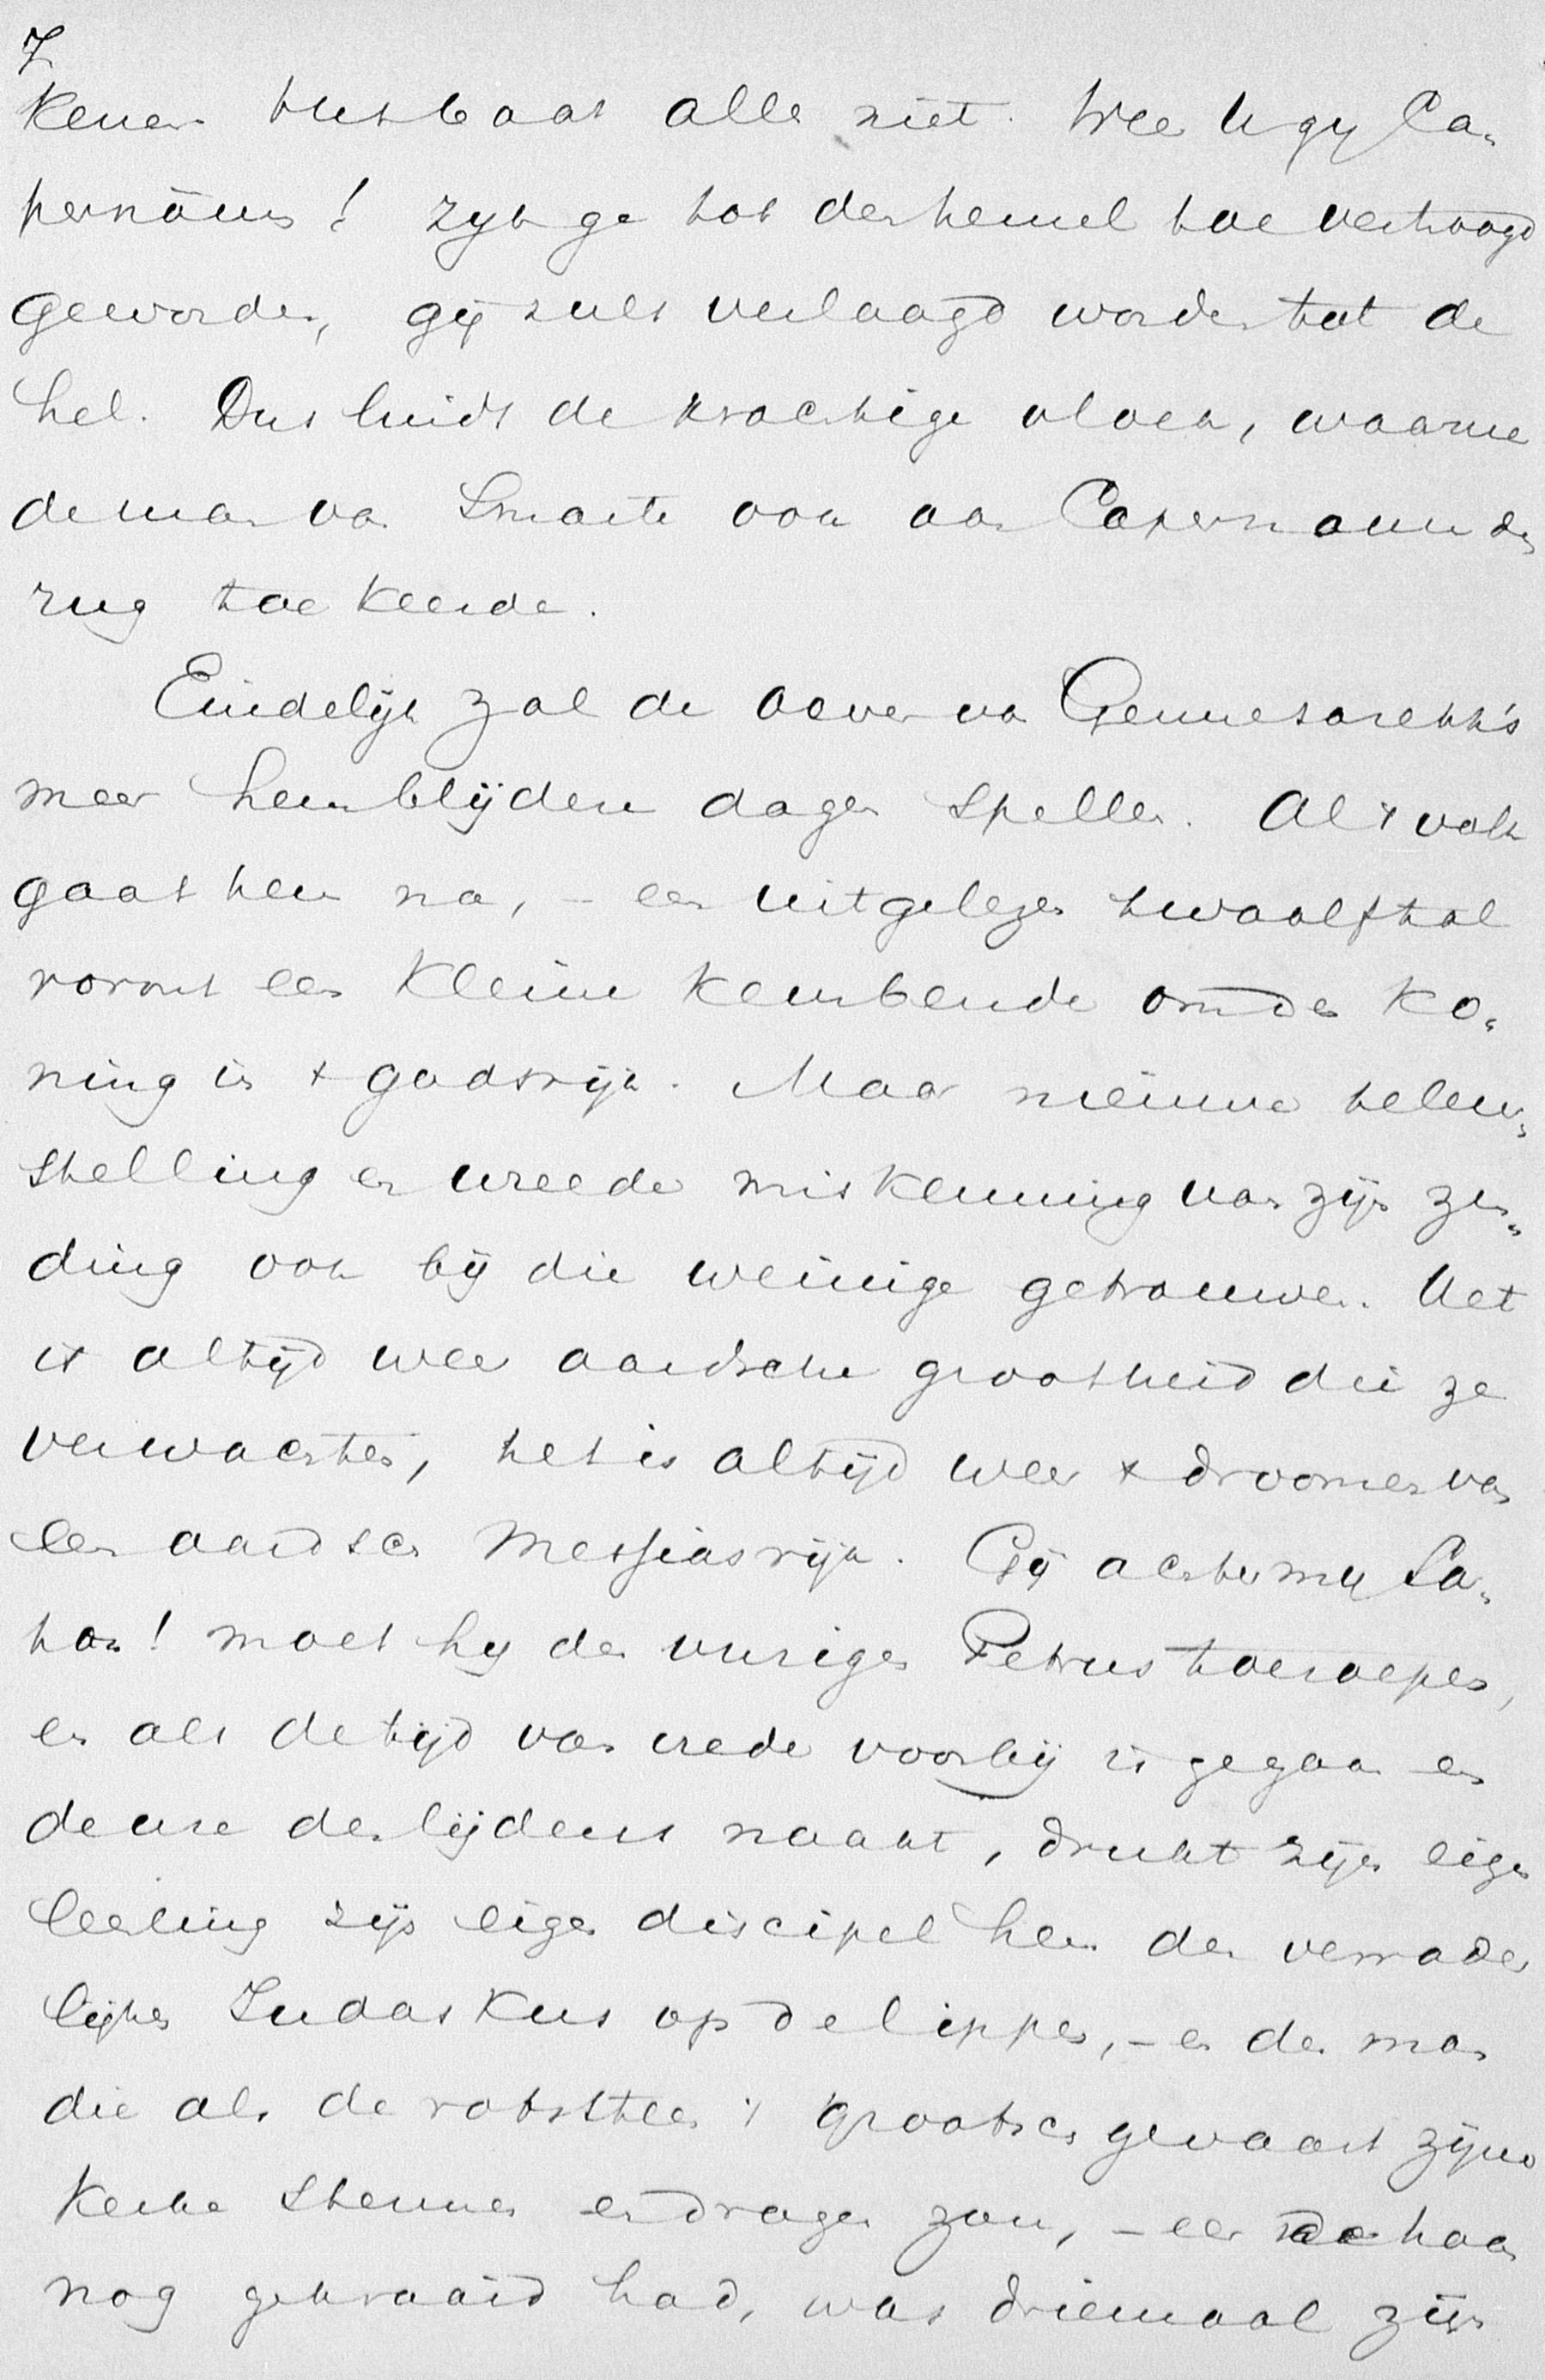 7
kenen. Het baat alle niet. Wee U gy Ca-
pernäum! zyt ge tot den hemel toe verhoogd
geworden, gij zult verlaagd worden tot de
hel. Dus luidt de krachtige vloek, waarme
de man van Smarte ook aan Capernaum den
rug toe keerde.
Eindelijk zal de oever van Gennesareth's
meer hem blijden dagen spellen. Al 't volk
gaat hem na, - een uitgelezen twaalftal
vormt een kleine keurbende om den Ko-
ning in 't godsrijk. Maar nieuwe teleur-
stelling en wreede miskenning van zijn zen-
ding ook bij die weinige getrouwen. Het
is altijd weer aardsche grootheid die ze
verwachten, het is altijd weer 't droomen van
een aardsch Messiasrijk. Gij achter my Sa-
tan! moet hy den vurigen Petrus toeroepen,
en als de tijd van vrede voorbij is gegaan en
de ure des lijdens naakt, drukt zijn eigen
leerling zijn eigen discipel hem den verrader
lijken Judaskus op de lippen, - en de man
die als de rotssteen 't grootsch gevaart zijner
Kerke steunen en dragen zou, - eer de haan
nog gekraaid had, was driemaal zijn